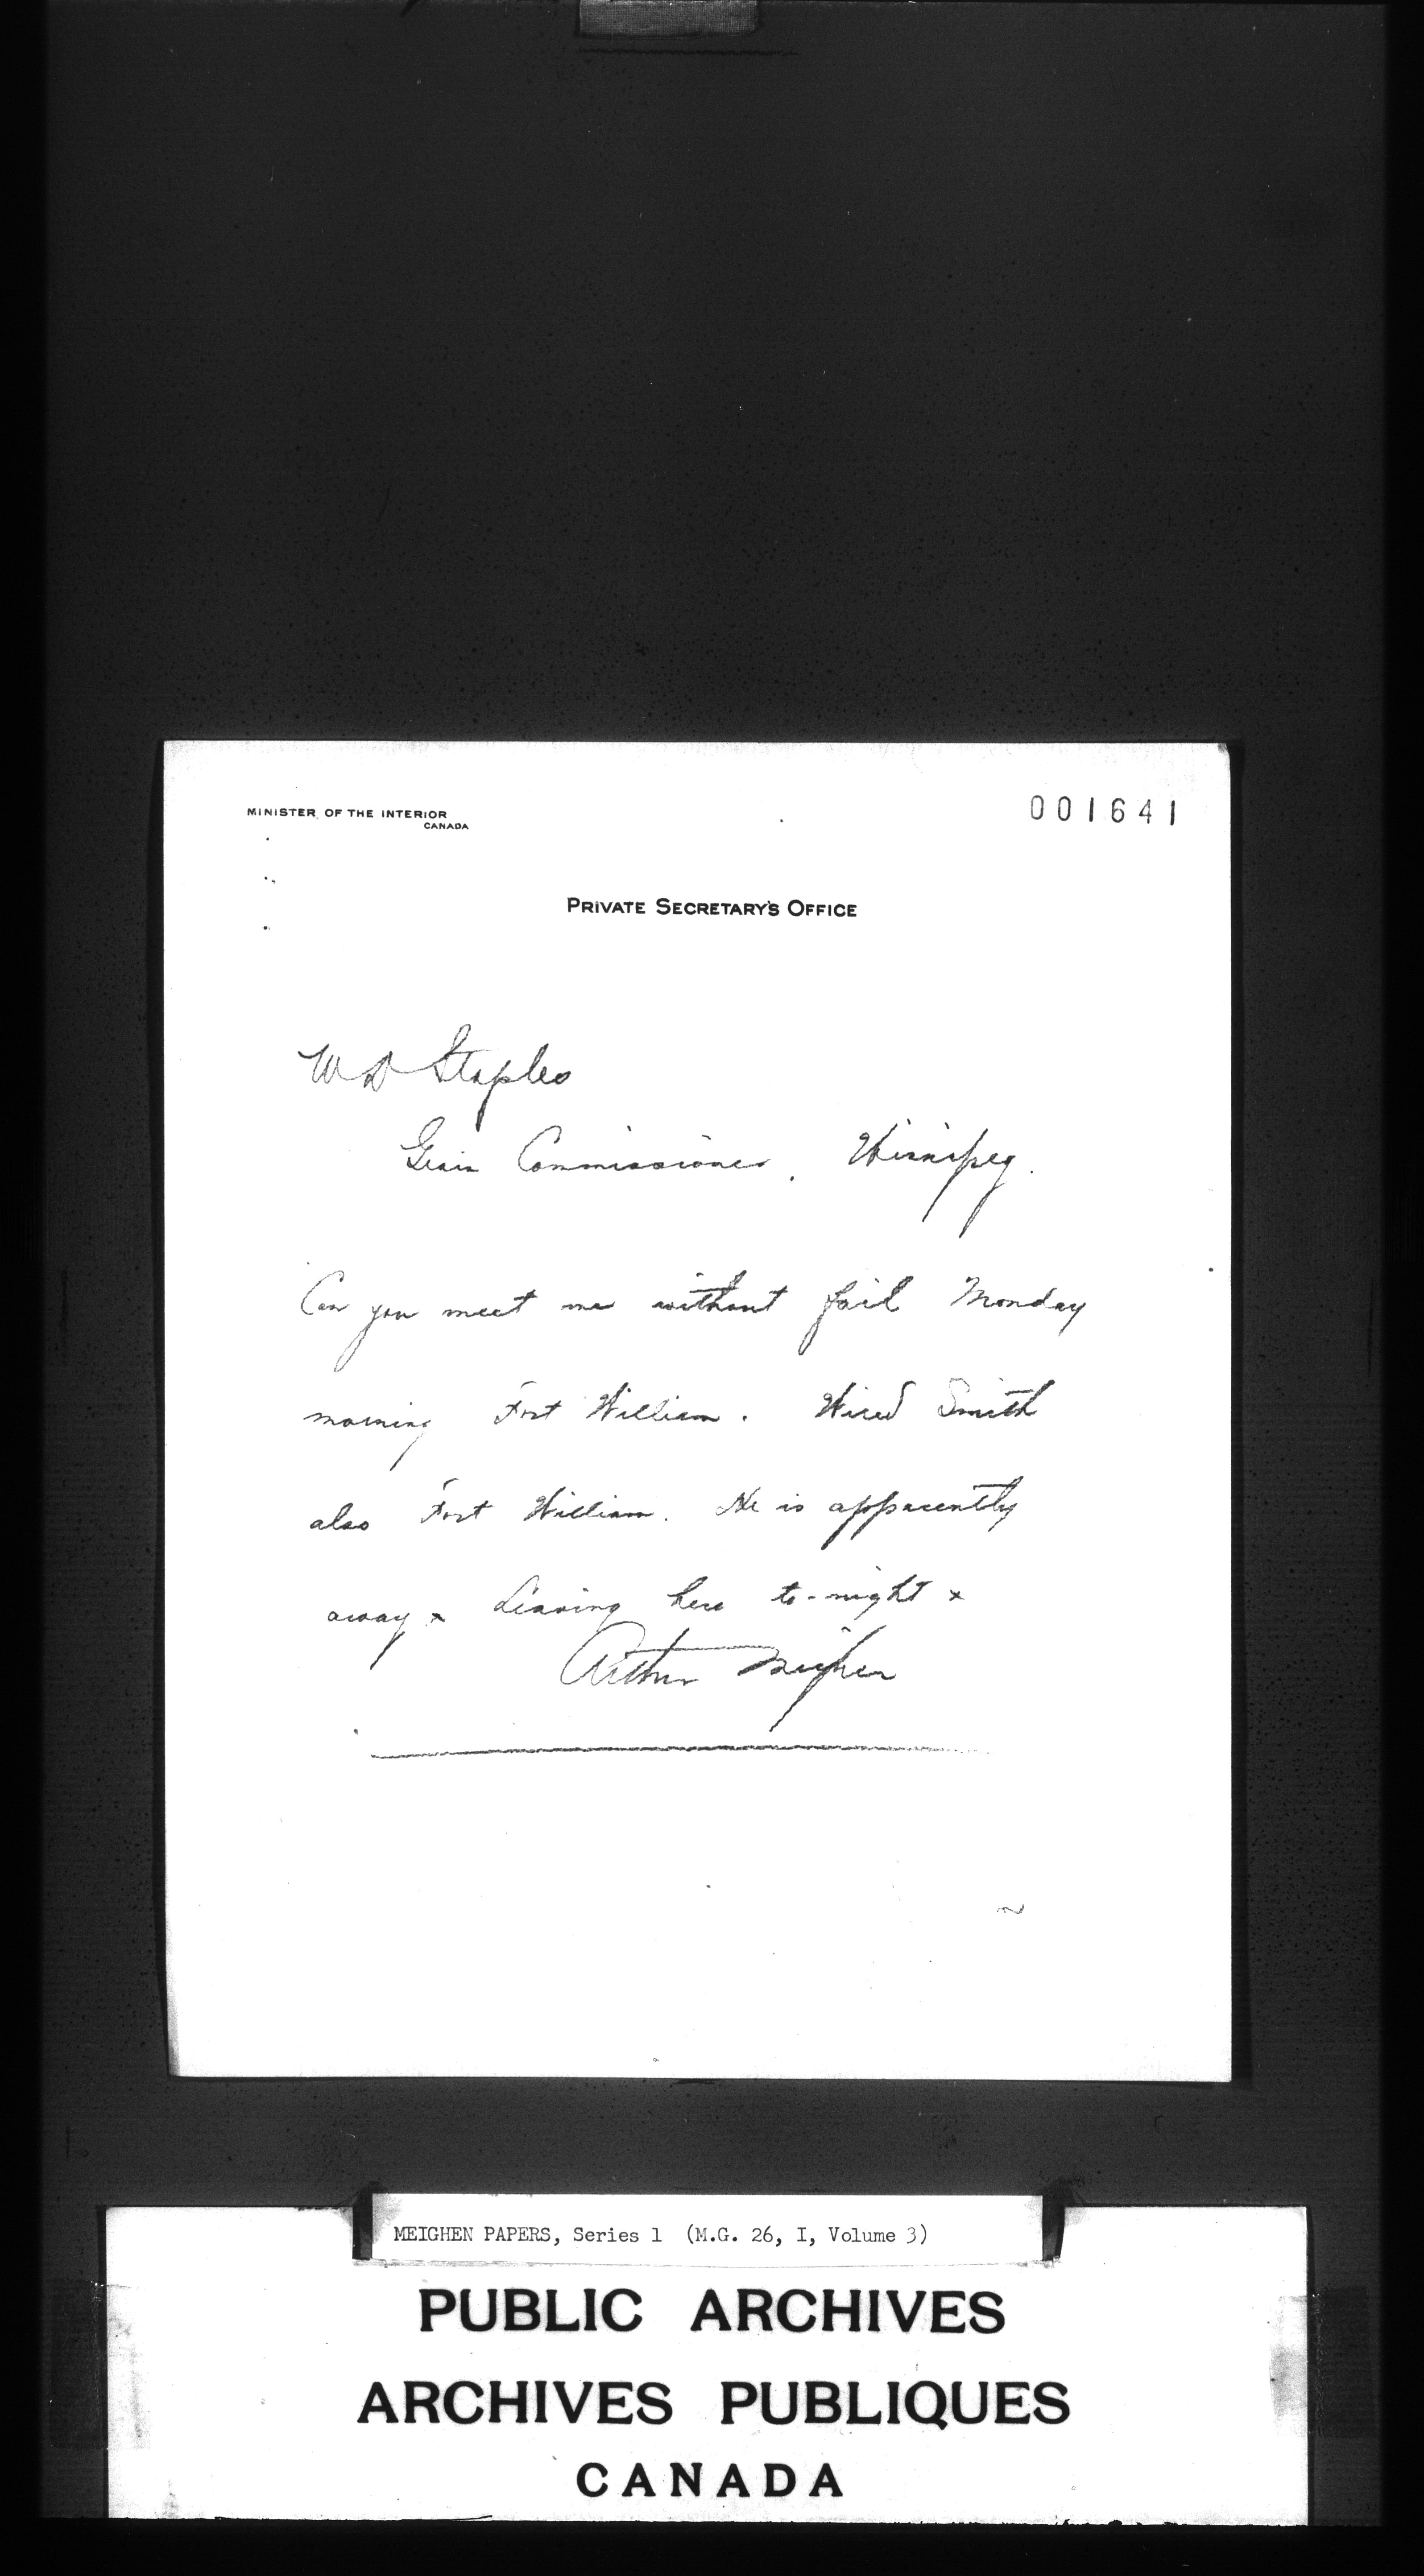 MINISTER OF THE INTERIOR
CANADA
001641
PRIVATE SECRETARY'S OFFICE
W D Staples
Grain Commissioner. Winnipeg.
Can you meet me without fail Monday
morning Fort William. Wired Smith
also Fort William. He is apparently
away x Leaving here to-night x
Arthur Meighen
MEIGHEN PAPERS, Series 1 (M.G. 26, I, Volume 3)
PUBLIC ARCHIVES
ARCHIVES PUBLIQUES
CANADA